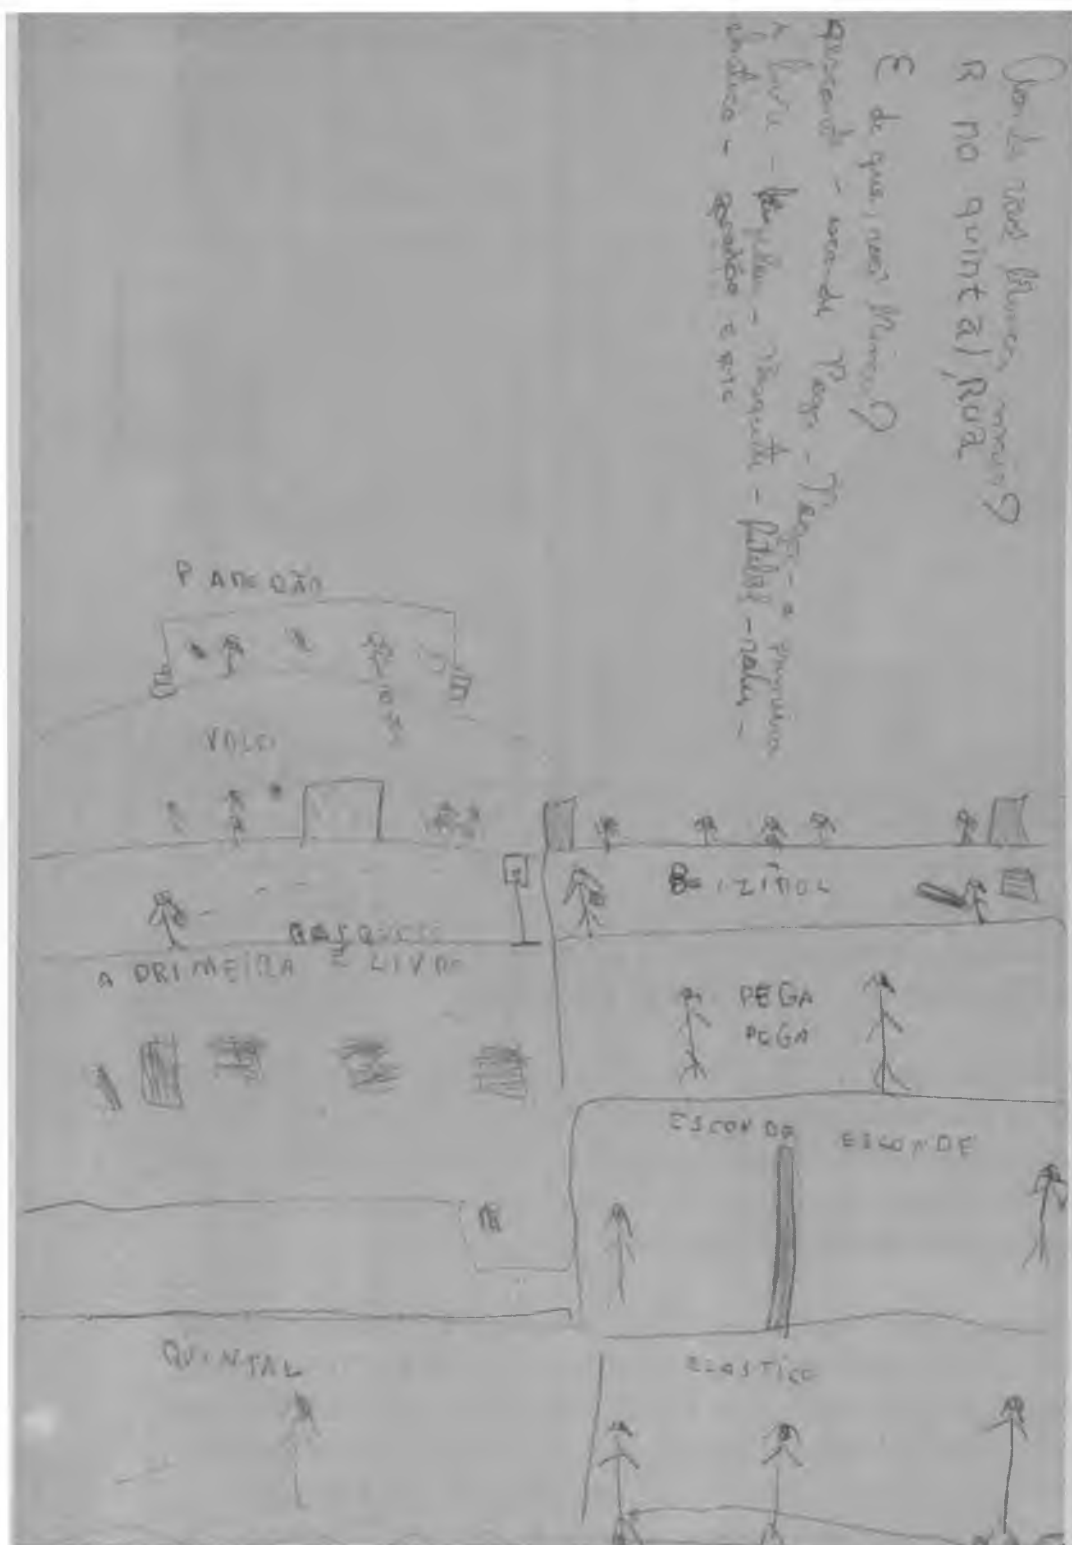 Aonde você brinca, mais?
R no quintal, Rua
E de que, você brinca?
esconde - esconde Pega - Pega - a primeira
é livre - - Basquete - futebol - volei -
elastico - e etc
PAREDÃO
VOLEI
BASQUETE
A PRIMEIRA É LIVRE
PEGA
PEGA
ESCONDE ESCONDE
QUINTAL
ELASTICO